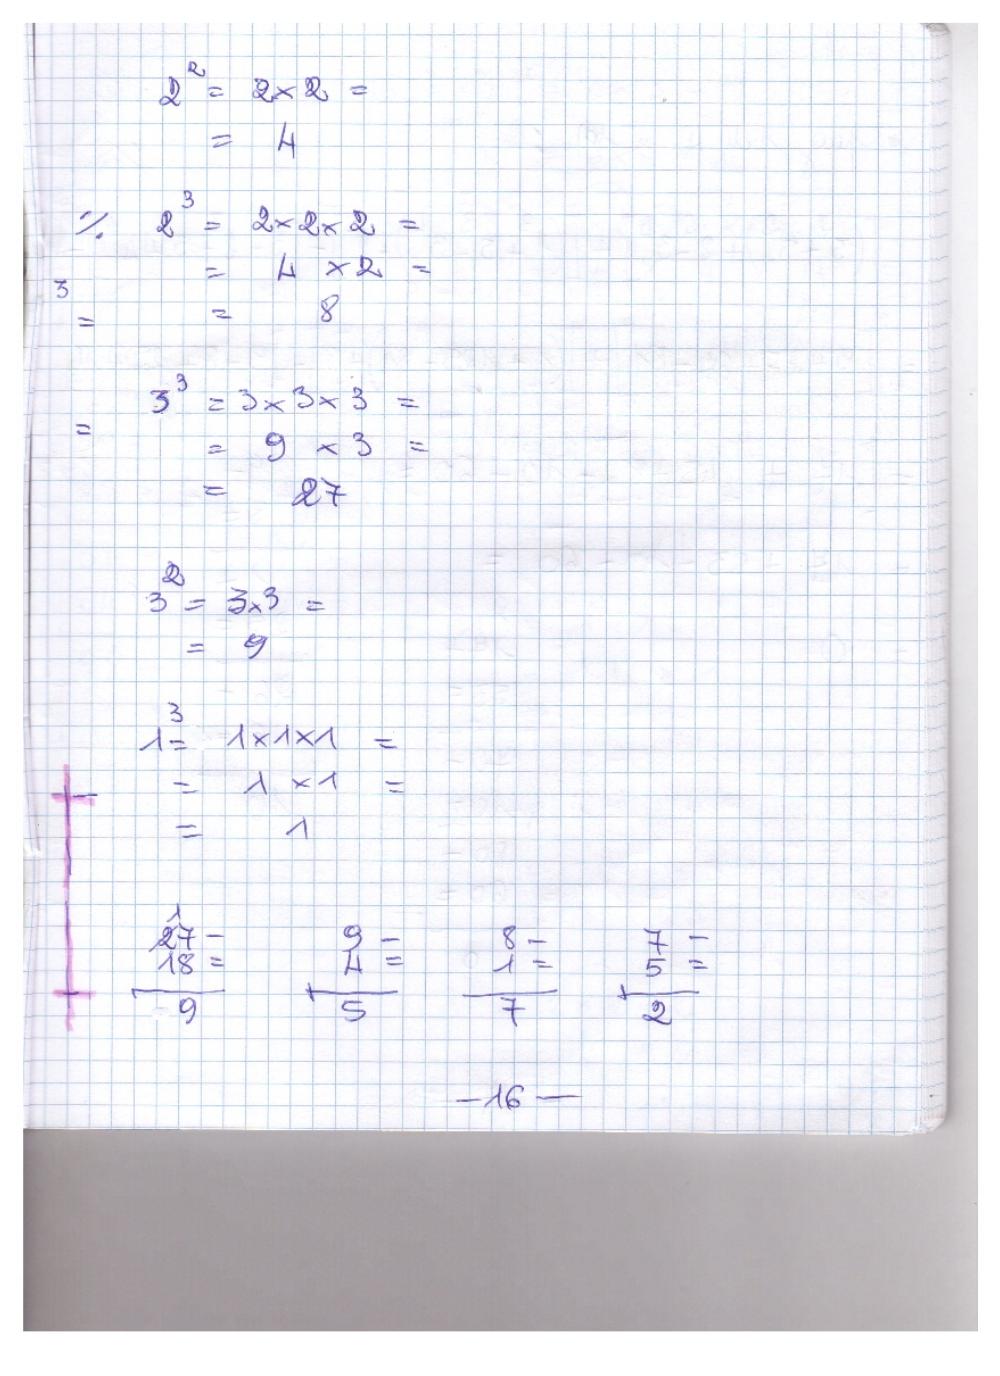 2² = 2 × 2 =
= 4
٪ 2³ = 2 × 2 × 2 =
= 4 × 2 =
3
= = 8
3³ = 3 × 3 × 3 =
=
= 9 × 3 =
= 27
3² = 3 × 3 =
= 9
1³ = 1 × 1 × 1 =
= 1 × 1 =
= 1
1
27 – 9 – 8 – 7 –
18 = 4 = 1 = 5 =
9 5 7 2
– 16 —